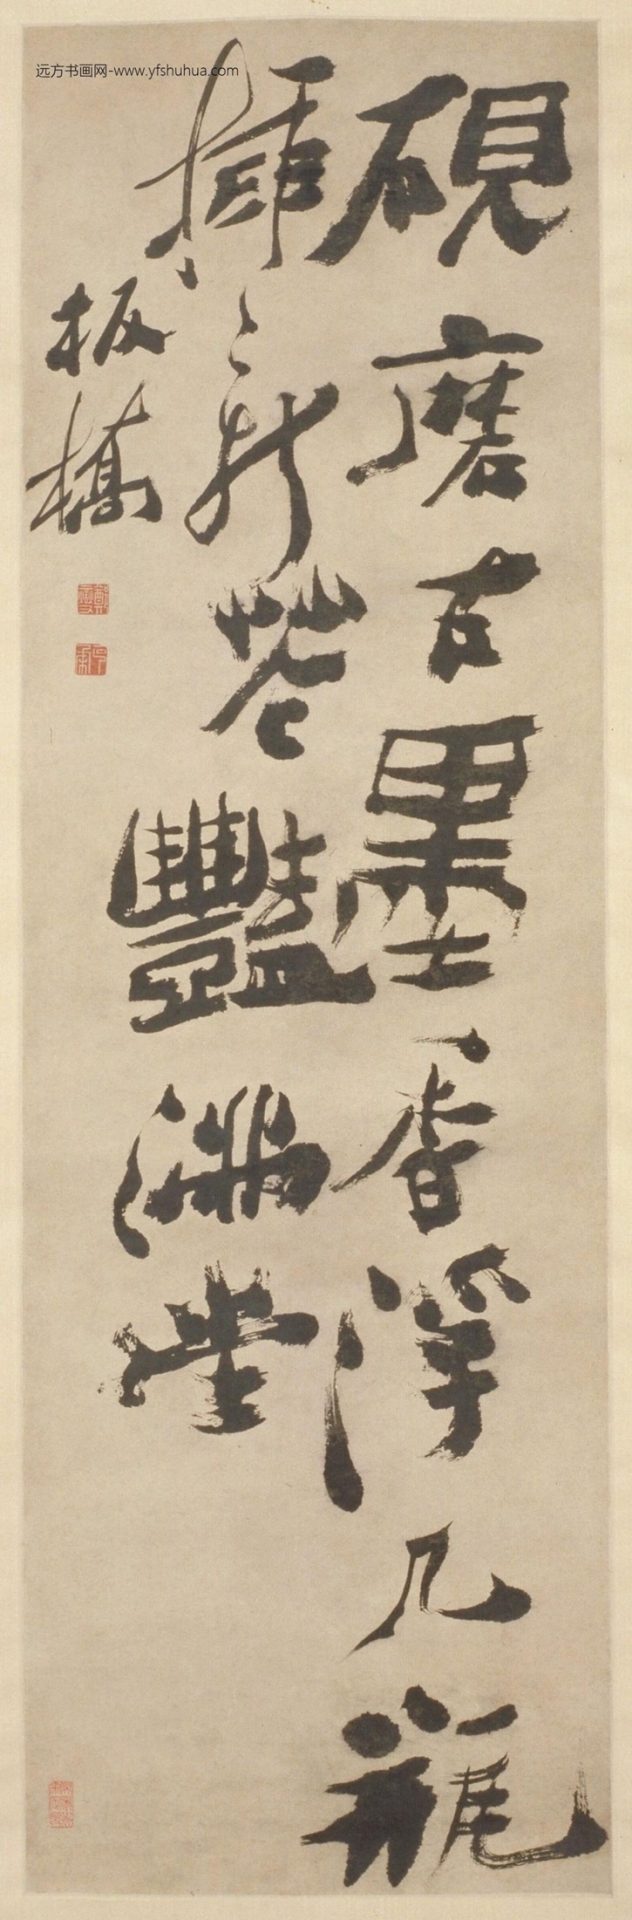 远方书画网-www.yfshuhua.com
硯磨古墨香浮几瓶
插新花豔滿堂
板橋